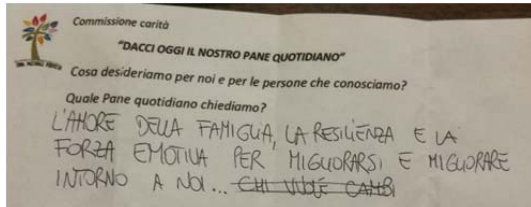 Commissione carità
"DACCI OGGI IL NOSTRO PANE QUOTIDIANO"
Cosa desideriamo per noi e per le persone che conosciamo?
Quale Pane quotidiano chiediamo?
L'AMORE DELLA FAMIGLIA, LA RESILIENZA E LA
FORZA EMOTIVA PER MIGLIORARSI E MIGLIORARE
INTORNO A NOI... CHI VUOLE CAMBI